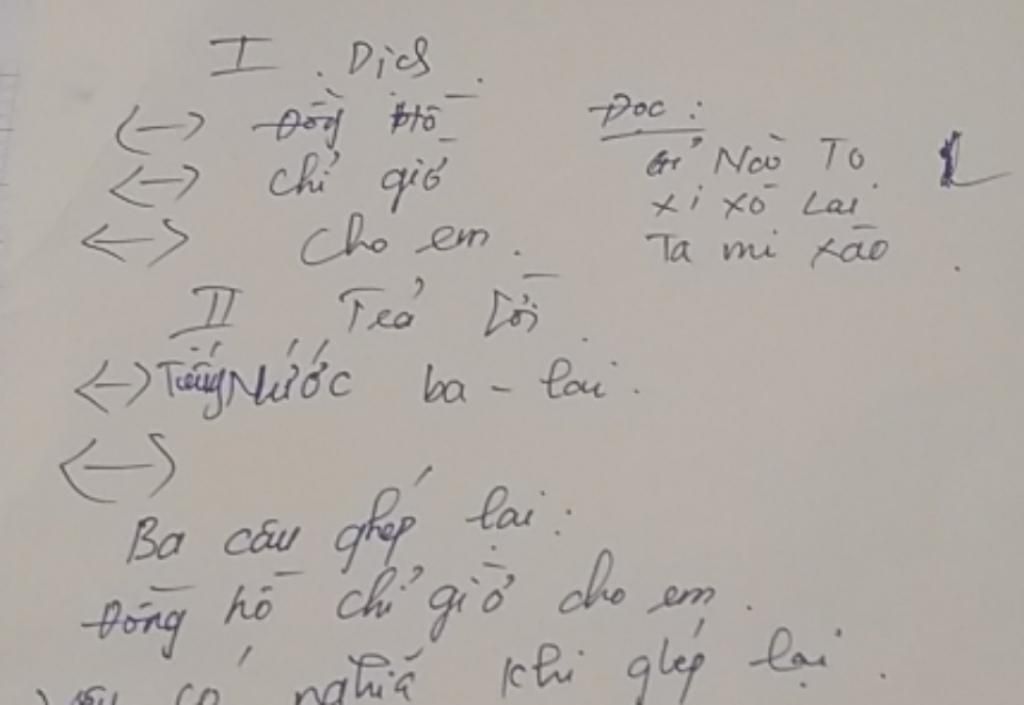 I. Dịch.
(—) Đồng hồ
(—) chỉ giờ
<—> cho em.
Đọc:
Nào To
xi xô Lai
Ta mi xāo
II Trả Lời.
<-> Tiếng Nước ba - lai.
<—>
Ba câu ghép lại:
Đồng hồ chỉ giờ cho em.
có nghiã khi ghép lại.